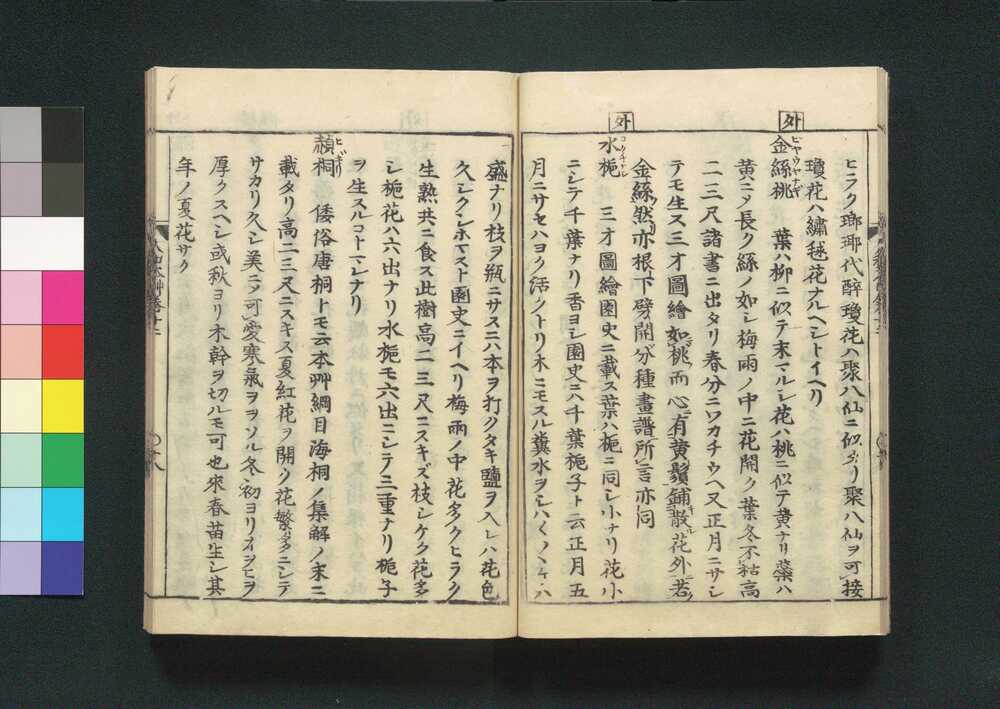 ヒラク瑯琊代醉瓊花ハ聚八仙ニ似タリ聚八仙ヲ可接
瓊花ハ繡毬花ナルヘシトイヘリ
外
金絲桃 ビヤウヤナギ 葉ハ柳ニ似テ末マルシ花ハ桃ニ似テ黄ナリ蘂ハ
黄ニメ長ク絲ノ如シ梅雨ノ中ニ花開ク葉冬不枯高
二三尺諸書ニ出タリ春分ニワカチウヘ又正月ニサシ
テモ生ス三才圖繪如桃而心有黄鬚鋪散花外若
金絲然亦根下劈開分種畫譜所言亦同
外
水梔 コクチナシ 三才圖繪園史ニ載ス葉ハ梔ニ同シ小ナリ花小
ニシテ千葉ナリ香ヨシ園史ニハ千葉梔子ト云正月五
月ニサセハヨク活クトリ木ニモスル糞水ヲシハ〱〱ケハ
盛ナリ枝ヲ瓶ニサスニハ本ヲ打クタキ鹽ヲ入レハ花色
久シクシホマスト園史ニイヘリ梅雨ノ中花多クヒラク
生熟共ニ食ス此樹高二三尺ニスキズ枝シケク花多
シ梔花ハ六出ナリ水梔モ六出ニシテ二重ナリ梔子
ヲ生スルコトマレナリ
赬桐 ヒギリ 倭俗唐桐トモ云本艸綱目海桐ノ集解ノ末ニ
載タリ高二三尺ニスキス夏紅花ヲ開ク花繁多ニシテ
サカリ久シ美ニメ可愛寒氣ヲヲソル冬初ヨリヲヒヲ
厚クスヘシ或秋ヨリ木幹ヲ切ルモ可也來春苗生シ其
年ノ夏花サク
大和本艸卷十二